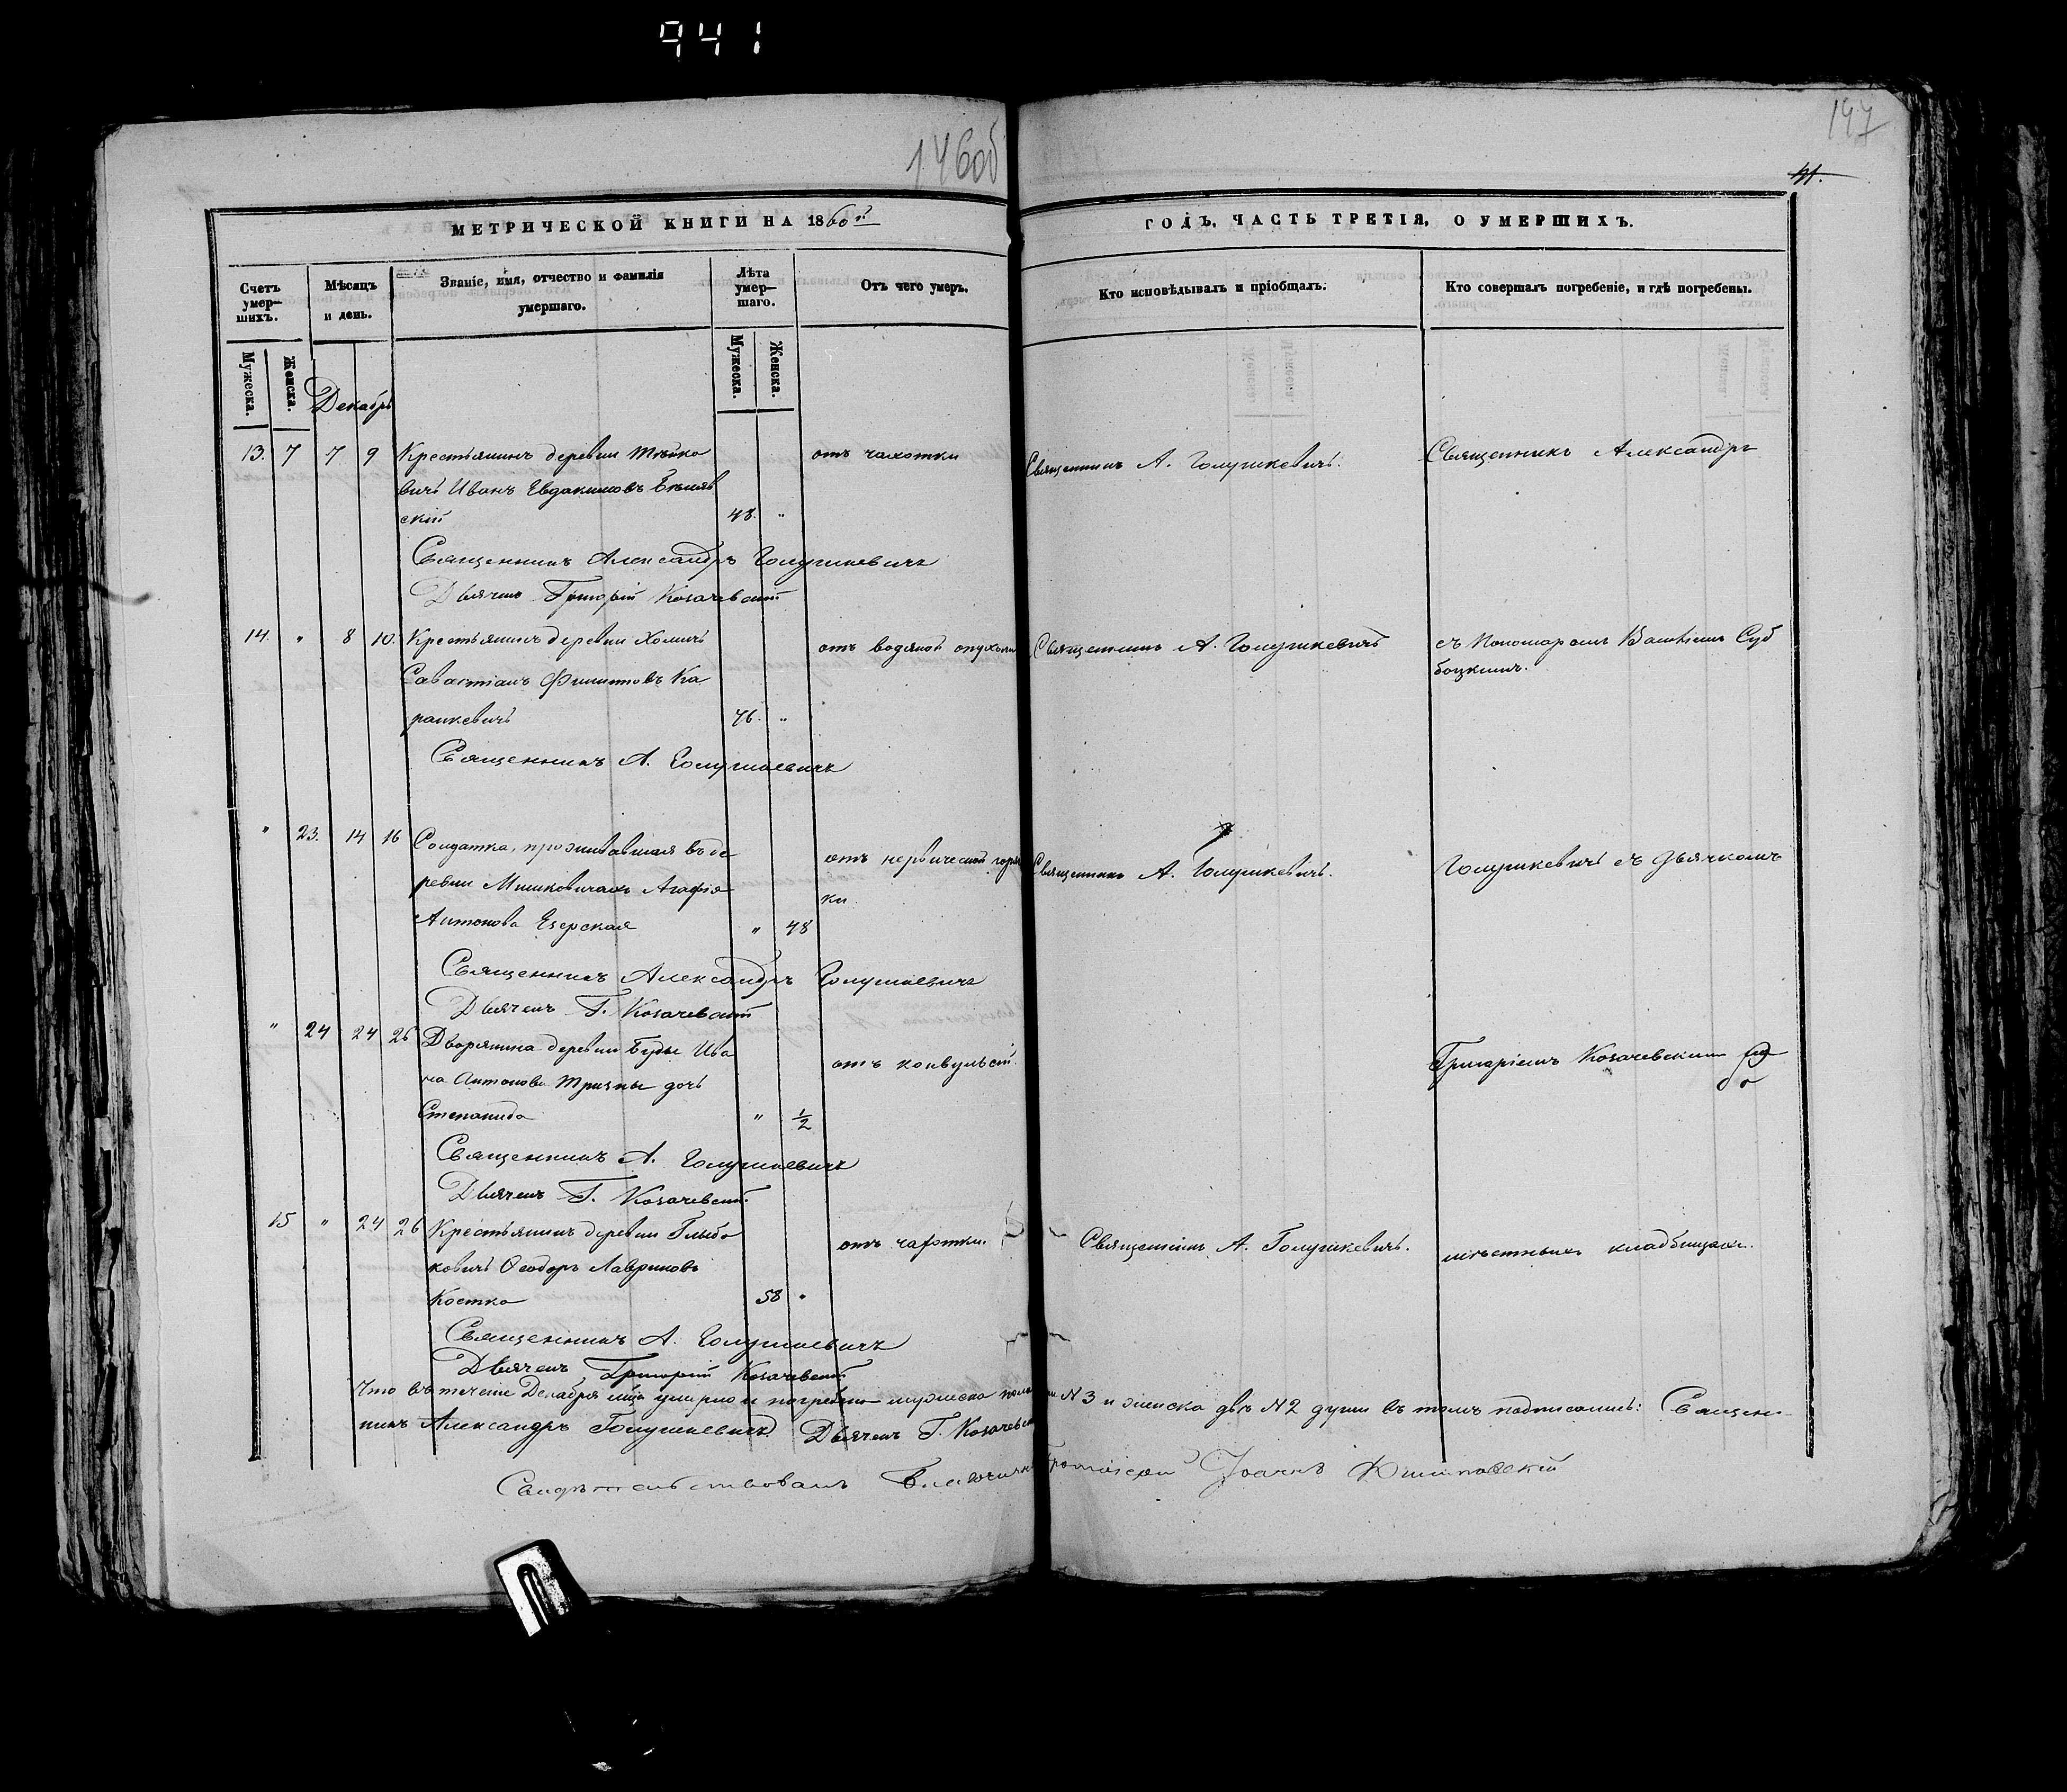 941
146об
147
41.
МЕТРИЧЕСКОЙ КНИГИ НА 1860й
ГОДЪ, ЧАСТЬ ТРЕТІЯ, О УМЕРШИХЪ.
Счетъ умер-шихъ.
Мѣсяцъ и день.
Званіе, имя, отчество и фамилія умершаго.
Лѣта умер-шаго.
Отъ чего умеръ.
Кто исповѣдывалъ и пріобщалъ.
Кто совершалъ погребеніе, и гдѣ погребены.
Мужеска. Женска.
Мужеска. Женска.
Декабрь
13. 7 7 9 Крестьянинъ деревни
вичъ Иванъ Евдокимовъ
скій 48. "
отъ чахотки
Священникъ А. Голушкевичъ.
Священникъ Александръ
Священникъ Александръ Голушкевичъ
Дьячекъ Григорій Козачевскій
14. " 8 10. Крестьянинъ деревни Холичъ
Савастіанъ Филиповъ Ка
ранкевичъ 46. "
отъ водяной опухоли
Священникъ А. Голушкевичъ
съ Пономаремъ Суб
боцкимъ.
Священникъ А. Голушкевичъ
" 23. 14 16 Солдатка, проживавшая въ де
ревни Мишковичахъ Агафія
Антонова Езерская " 48
отъ нервической горяч
ки
Священникъ А. Голушкевичъ.
Голушкевичъ съ Дьячкомъ
Священникъ Александръ Голушкевичъ
Дьячекъ Г. Козачевскій
" 24 24 26 Дворянина деревни Буды Ива
на Антонова Тризны дочь
Степанида " 1/2
отъ конвульсій.
Григоріемъ Козачевскимъ
Священникъ А. Голушкевичъ
Дьячекъ Г. Козачевскій
15 " 24 26 Крестьянинъ деревни Глыбо
ковичъ Ѳеодоръ Лавриновъ
Костка 58 "
отъ чахотки.
Священникъ А. Голушкевичъ.
мѣстныхъ кладбищахъ.
Священникъ А. Голушкевичъ
Дьячекъ Григорій Козачевскій
Что въ теченіе Декабря м-ца умерло и погребено мужеска пола три N 3 и женска двѣ N 2 души въ томъ подписались: Священ-
никъ Александръ Голушкевичъ Дьячекъ Г. Козачевскій
Свидѣтельствовалъ Благочинный Протоіерей Іоаннъ